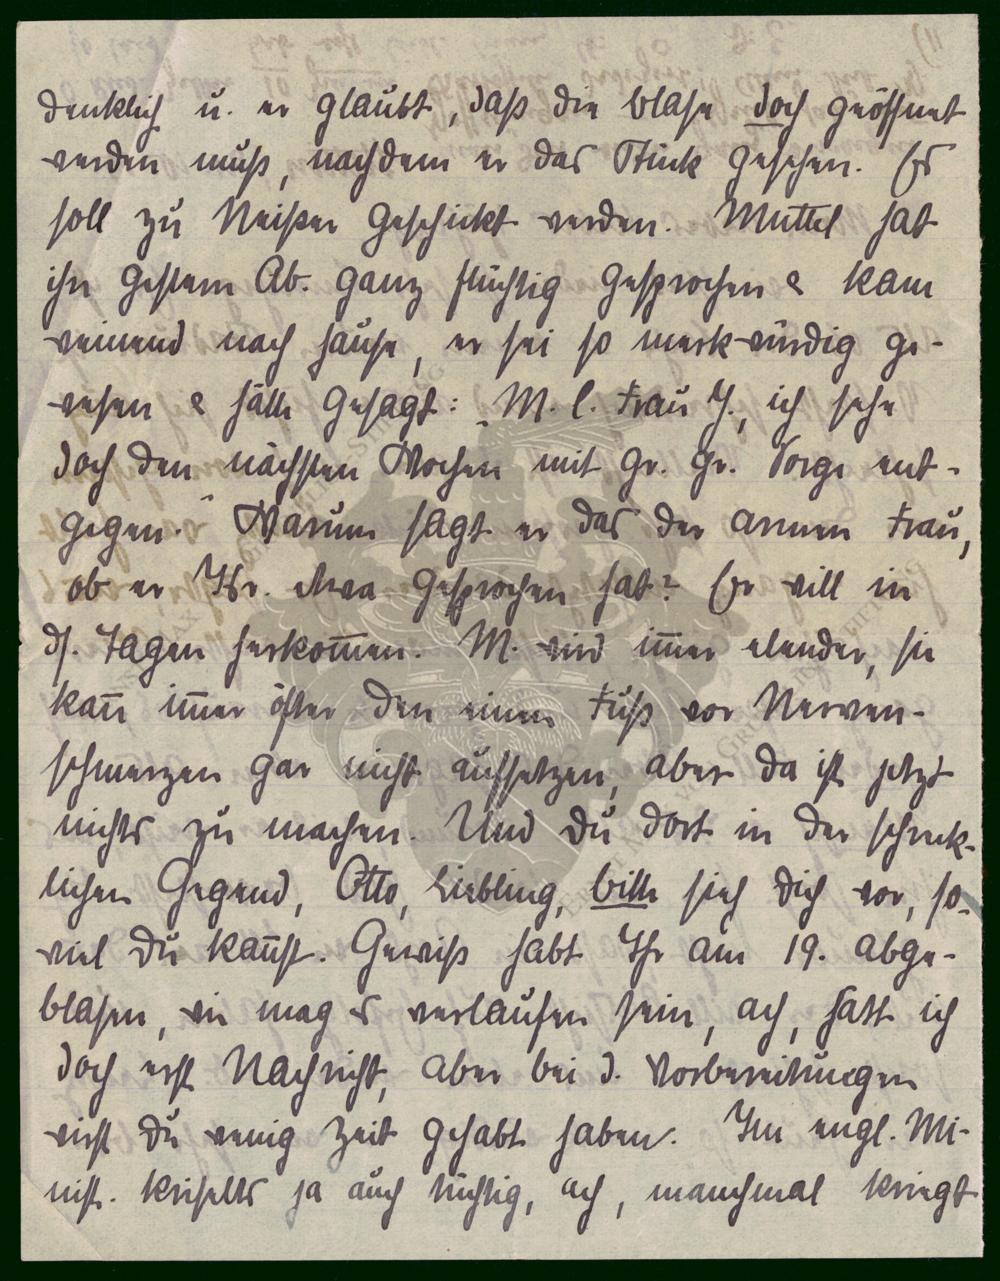 denklich u. er glaubt, daß die Blase doch geöffnet
werden muß, nachdem er das Stück gesehen. Es
soll zu Neißer geschickt werden. Muttel hat
ihn gestern Ab. ganz flüchtig gesprochen & kam
weinend nach Hause, er sei so merkwürdig ge-
wesen & hätte gesagt: „M. l. Frau J., ich sehe
doch den nächsten Wochen mit gr. gr. Sorge ent-
gegen.“ Warum sagt er das der armen Frau,
ob er Ihr. etwa gesprochen hat? Er will in
ds. Tagen herkom̅en. M. wird im̅er elender, sie
kan̅ im̅er öfter den einen Fuß vor Nerven-
schmerzen gar nicht aufsetzen, aber da ist jetzt
nichts zu machen. Und Du dort in der schreck-
lichen Gegend, Otto, Liebling, bitte sieh Dich vor, so-
viel Du kan̅st. Gewiß habt Ihr am 19. abge-
blasen, wie mag es verlaufen sein, ach, hätt ich
doch erst Nachricht, aber bei d. Vorbereitungen
wirst Du wenig Zeit gehabt haben. Im engl. Mi-
nist. kriselts ja auch tüchtig, ach, manchmal kriegt